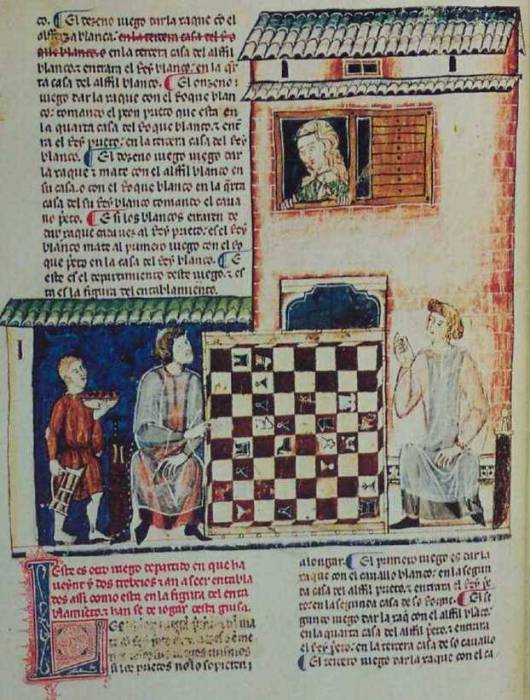 co. El dozeno iuego dar la xaque cõ el
alfferza blanca. en la tercera casa del Ro
que blanco. o en la tercera casa del alffil
blanco. z entrara el Rey blanco. en la q̃r
ta casa del alffil blanco. El onzeno
iuego dar la xaque con el Roque blan
co. tomando el peon prieto que esta en
la quarta casa del Roque blanco. z entr
ra el Rey prieto. en la tercera casa del Rey
blanco. El dozeno iuego dar
la xaque z mate con el alffil blanco en
su casa. o con el Roque blanco en la q̃rta
casa del su Rey blanco tomando el caua
no prieto. E si los blancos erraren de
dar xaque cada uez al Rey prieto. es el Rey
blanco mate al primero iuego con el ro
que prieto en la casa del Rey blanco. E
este es el departimiento deste iuego. z es
ta es la figura del entablamiento.
Este es otro iuego departido en que ha
ueynte z dos trebeios z an a seer entabla
dos assi como esta en la figura del enta
blamiento. z han se de iogar desta guisa.
prietos no lo sopieren
alongar. El primero iuego es dar la
xaque con el cauallo blanco. en la segun
da casa del alffil prieto. z entrara el Rey
en la segunda casa de so Roque. El se
gundo iuego dar la xaq̃ con el alffil blãco.
en la quarta casa del alffil prieto. z entrara
el Rey prieto. en la tercera casa de so cauallo
El tercero iuego dar la xaque con el ca